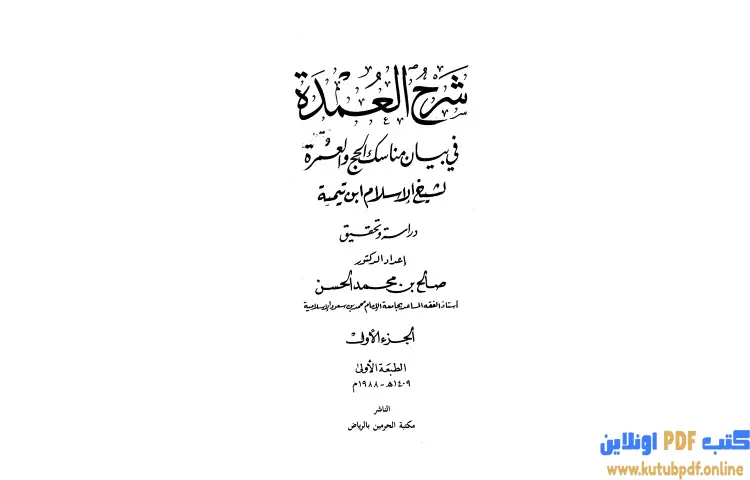 شرح العمدة
في بيان مناسك الحج والعمرة
لشيخ الإسلام ابن تيمية
دراسة وتحقيق
إعداد الدكتور
صالح بن محمد الحسن
أستاذ الفقه المساعد بجامعة الإمام محمد بن سعود الإسلامية
الجزء الأول
الطبعة الأولى
١٤٠٩هـ - ١٩٨٨م
الناشر
مكتبة الحرمين بالرياض
كتب PDF اونلاين
www.kutubpdf.online